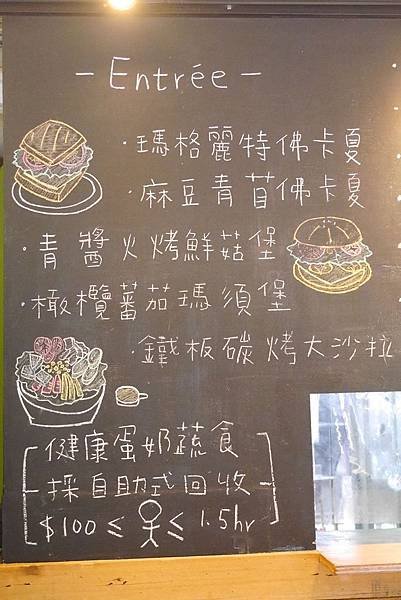 - Entrée -
·瑪格麗特佛卡夏
·麻豆青苜佛卡夏
·青醬火烤鮮菇堡
·橄欖蕃茄瑪須堡
·鐵板碳烤大沙拉
健康蛋奶蔬食
-採自助式回收-
$100 ≤ ≤ 1.5hr